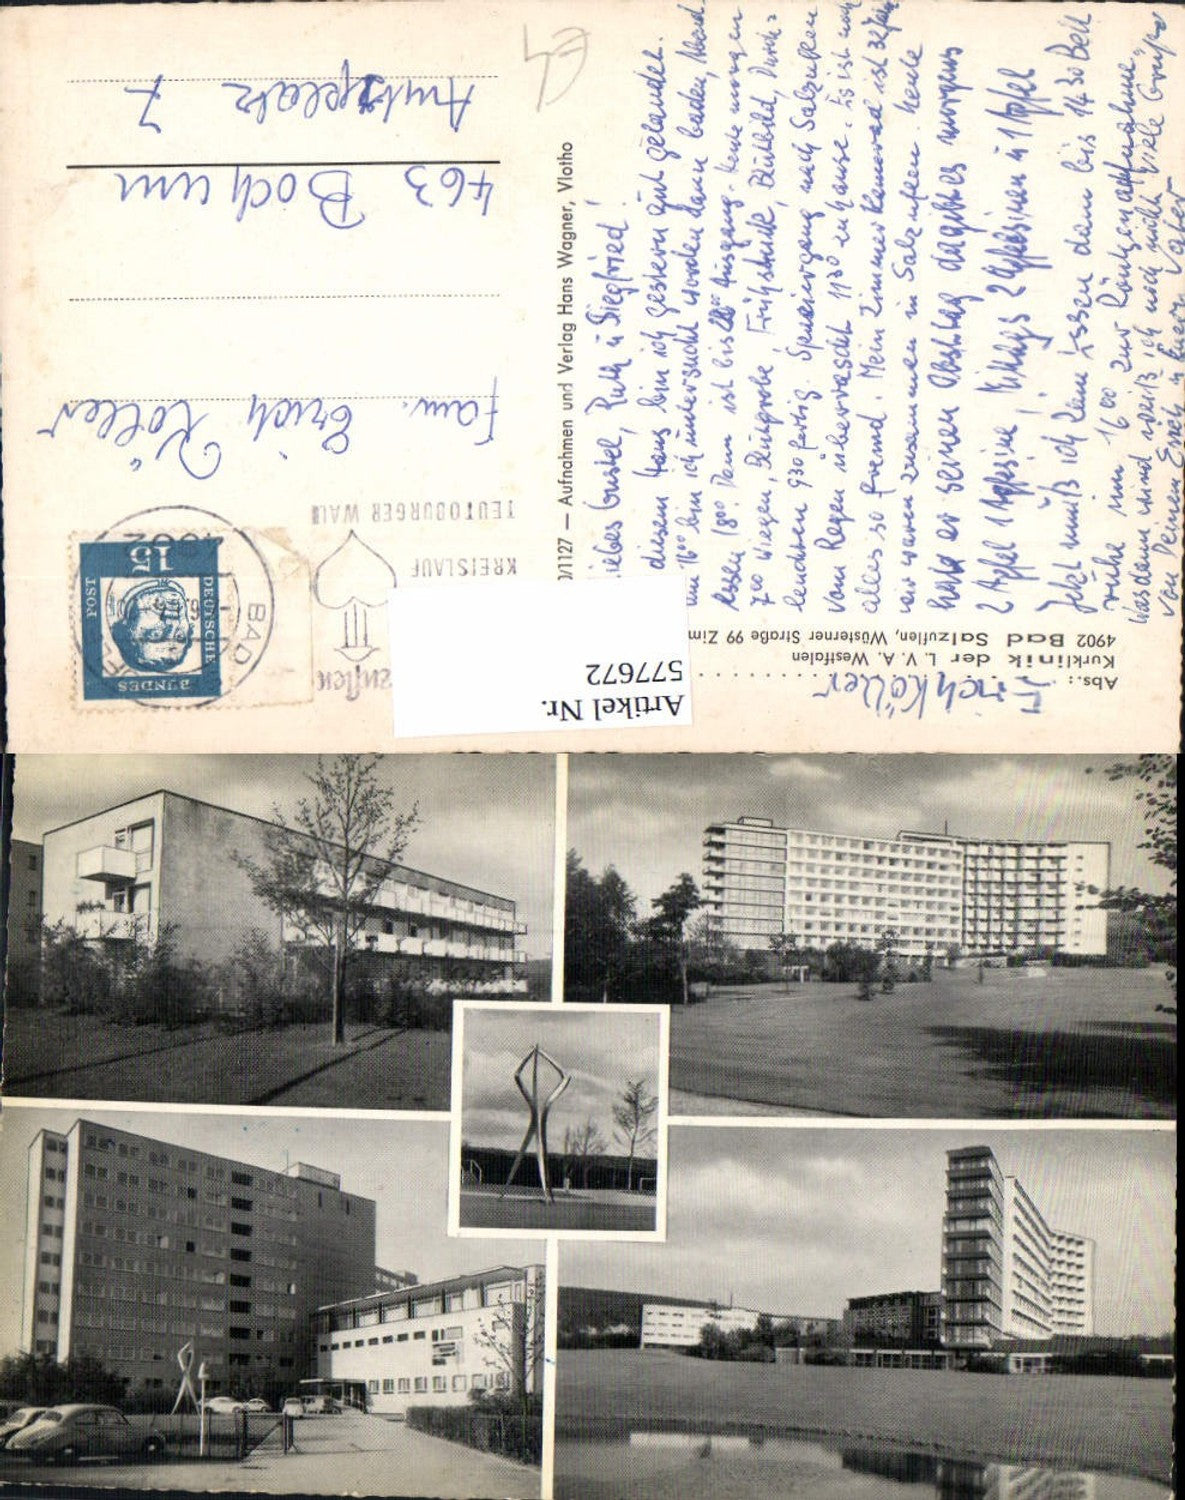 Abs.: Erich Köller
Kurklinik der L. V. A. Westfalen
4902 Bad Salzuflen, Wüstener Straße 99 Zim
Liebes Gustel, Ruth u Siegfried!
diesem Haus bin ich gestern gut gelandet.
um 16⁰⁰ bin ich untersucht worden dann baden, Abend
essen 18⁰⁰ Dann ist bis Ausgang. heute morgen
7⁰⁰ wiegen, Blutprobe, Frühstück, Blutbild, Durch=
leuchten 9³⁰ fertig. Spaziergang nach Salzuflen
vom Regen überrascht 11³⁰ zu hause. Es ist noch
alles so fremd. Mein Zimmerkamerad ist 32 Jahre
wir waren zusammen in Salzuflen. heute
hat er seinen Obsttag da gibt es morgens
2 Apfel 1 Apfelsine, Mittags 2 Apfelsinen u 1 Apfel
Jetzt muß ich zum Essen dann bis 14³⁰ Bett
ruhe um 16⁰⁰ zur Röntgenaufnahme,
was dann wird weiß ich noch nicht Viele Grüße
von Deinen Erich u euern Vater
0/1127 — Aufnahmen und Verlag Hans Wagner, Vlotho
BAD
4902
KREISLAUF
TEUTOBURGER WALD
DEUTSCHE
BUNDES
POST
15
Fam. Erich Köller
463 Bochum
Amtsplatz 7
Artikel Nr.
577672